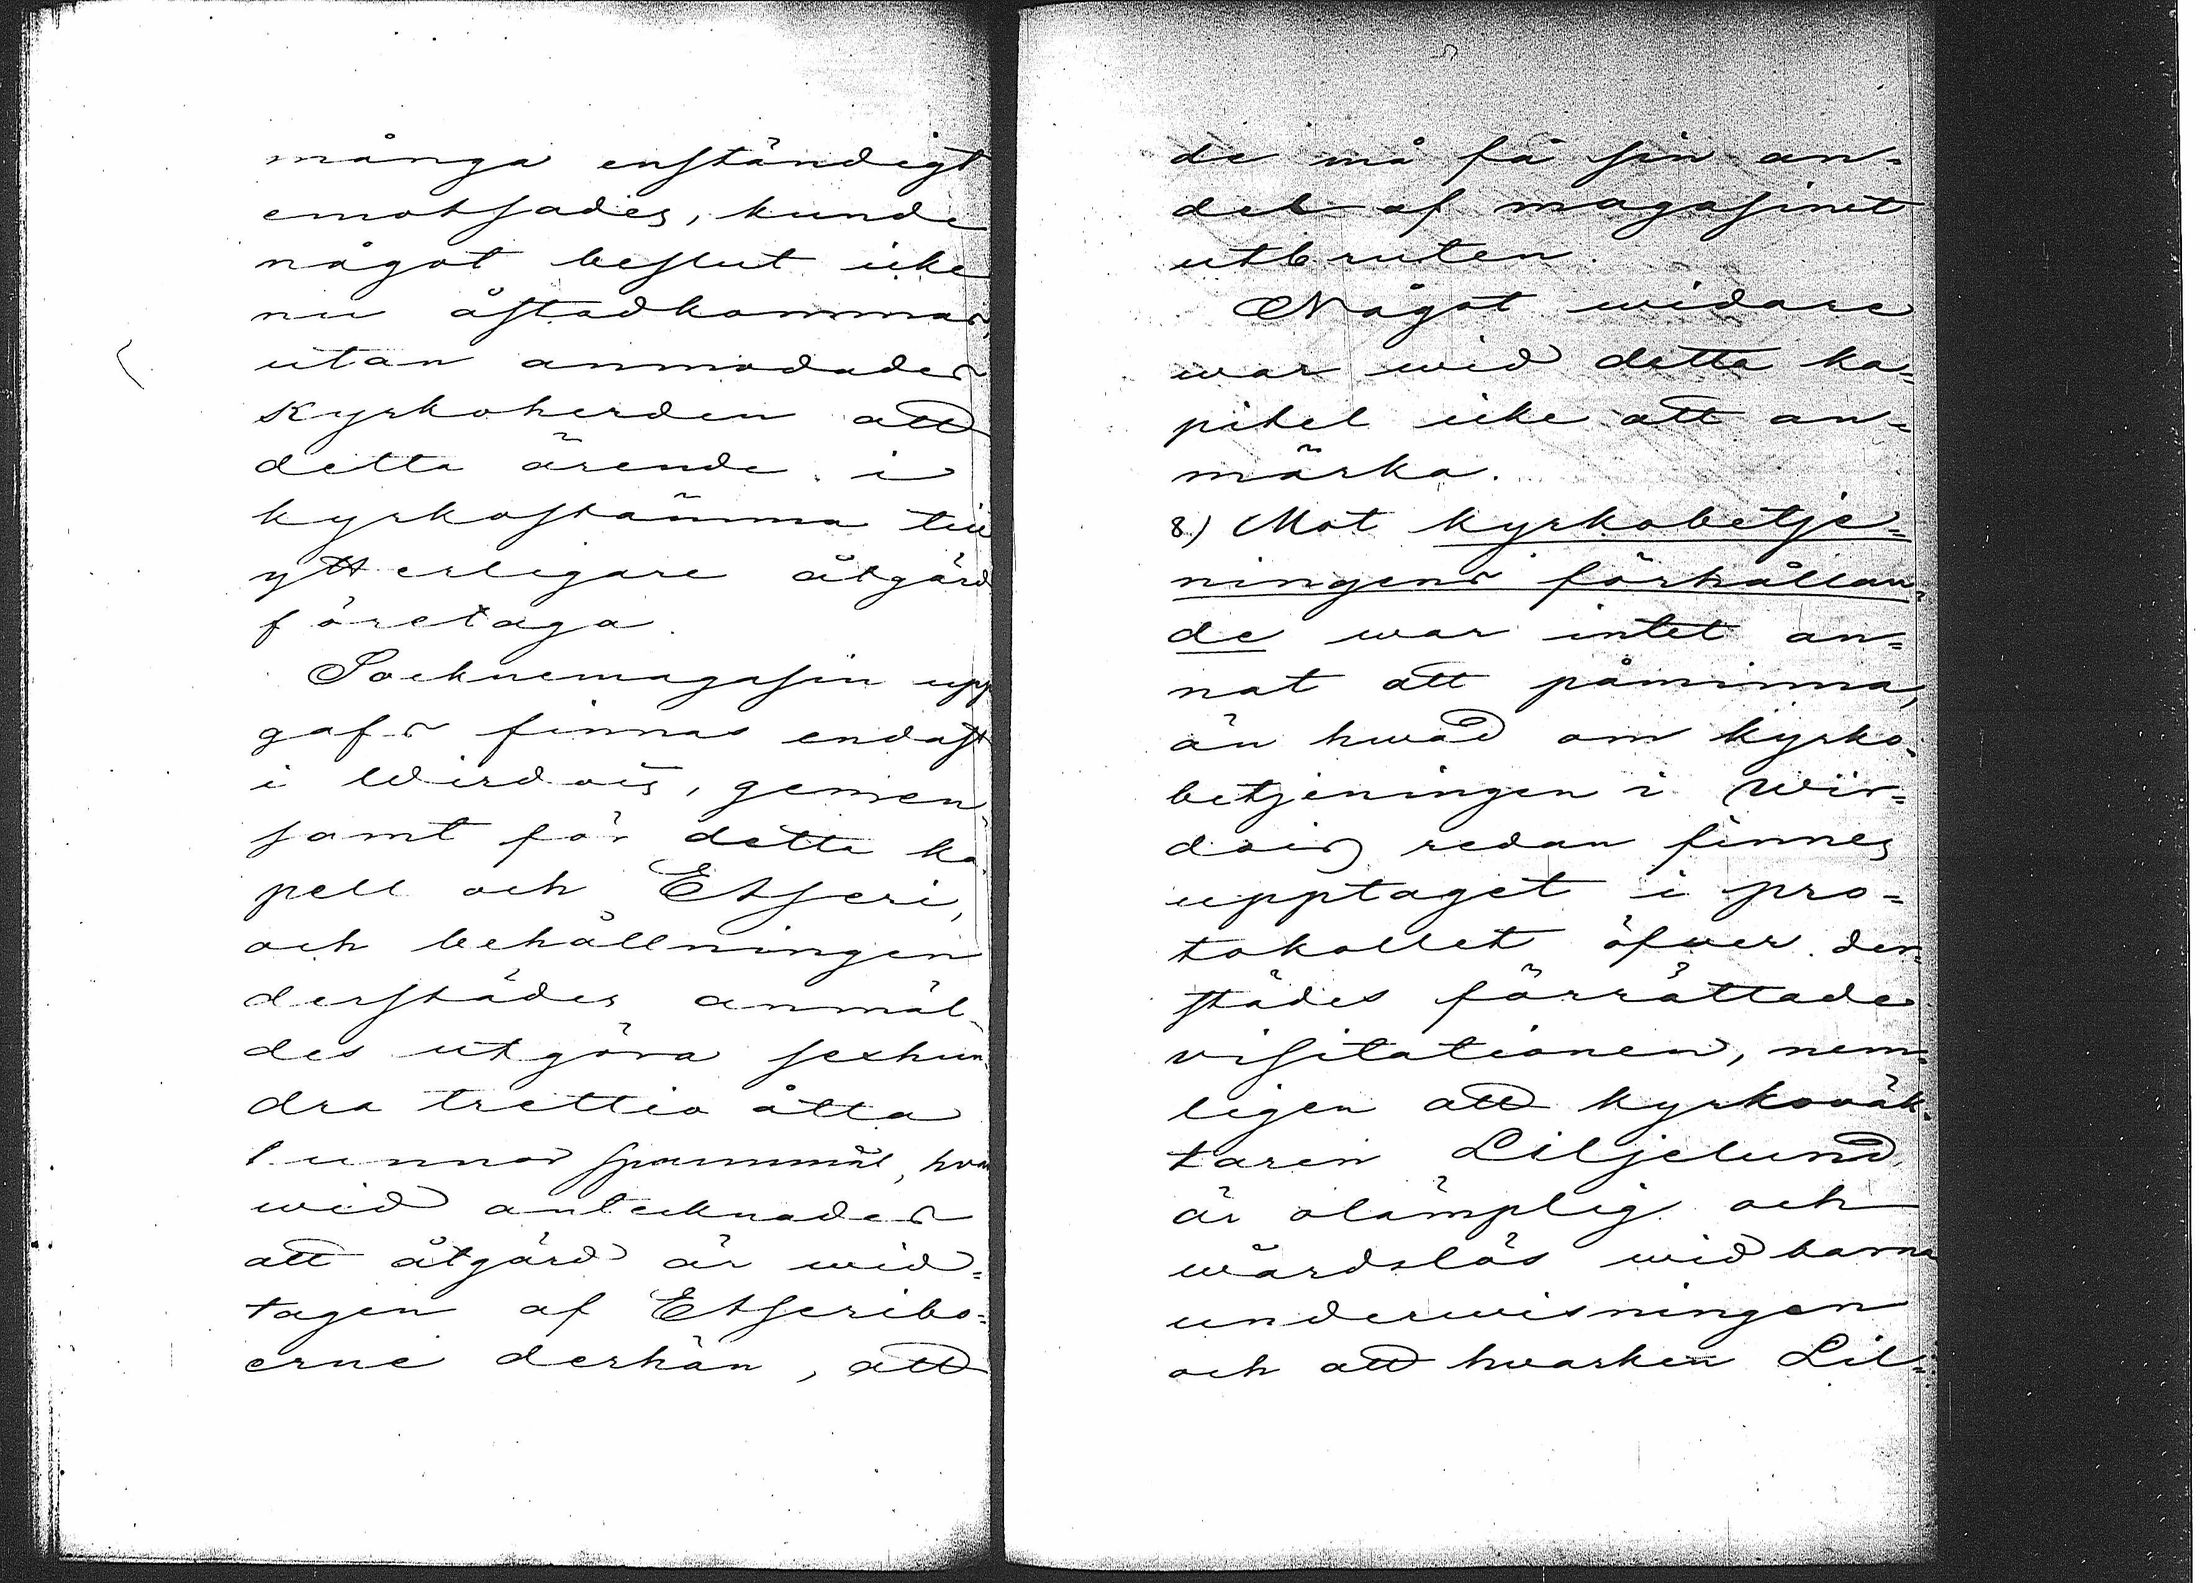 många enständigt
emotsades, kunde
något beslut icke
nu åstadkommas,
utan anmodades
Kyrkoherden att
detta ärende i
kyrkostämma till
ytterligare åtgärd
företaga.
Socknemagasin upp
gafs finnas endast
i Wirdois, gemen
samt för detta ka
pell och Etseri,
och behållningen
derstädes anmäl-
des utgöra sexhun
dra trettio åtta
tunnor spannmål, hvar
wid antecknades
att åtgärd är wid=
tagen af Etseribo=
erne derhän, att
de må få sin an=
del af magasinet
utbruten.
Något widare
war wid detta ka=
pitel icke att an=
märka.
8) Mot kyrkobetje=
ningens förhållan=
de war intet an=
nat att påminna,
än hwad om kyrko=
betjeningen i Wir=
dois redan finnes
upptaget i pro=
tokollet öfwer der=
städes förrättade
visitationen, nem=
ligen att kyrkoväk=
taren Liljelund
är olämplig och
wårdslös wid barna
underwisningen
och att hwarken Lil=